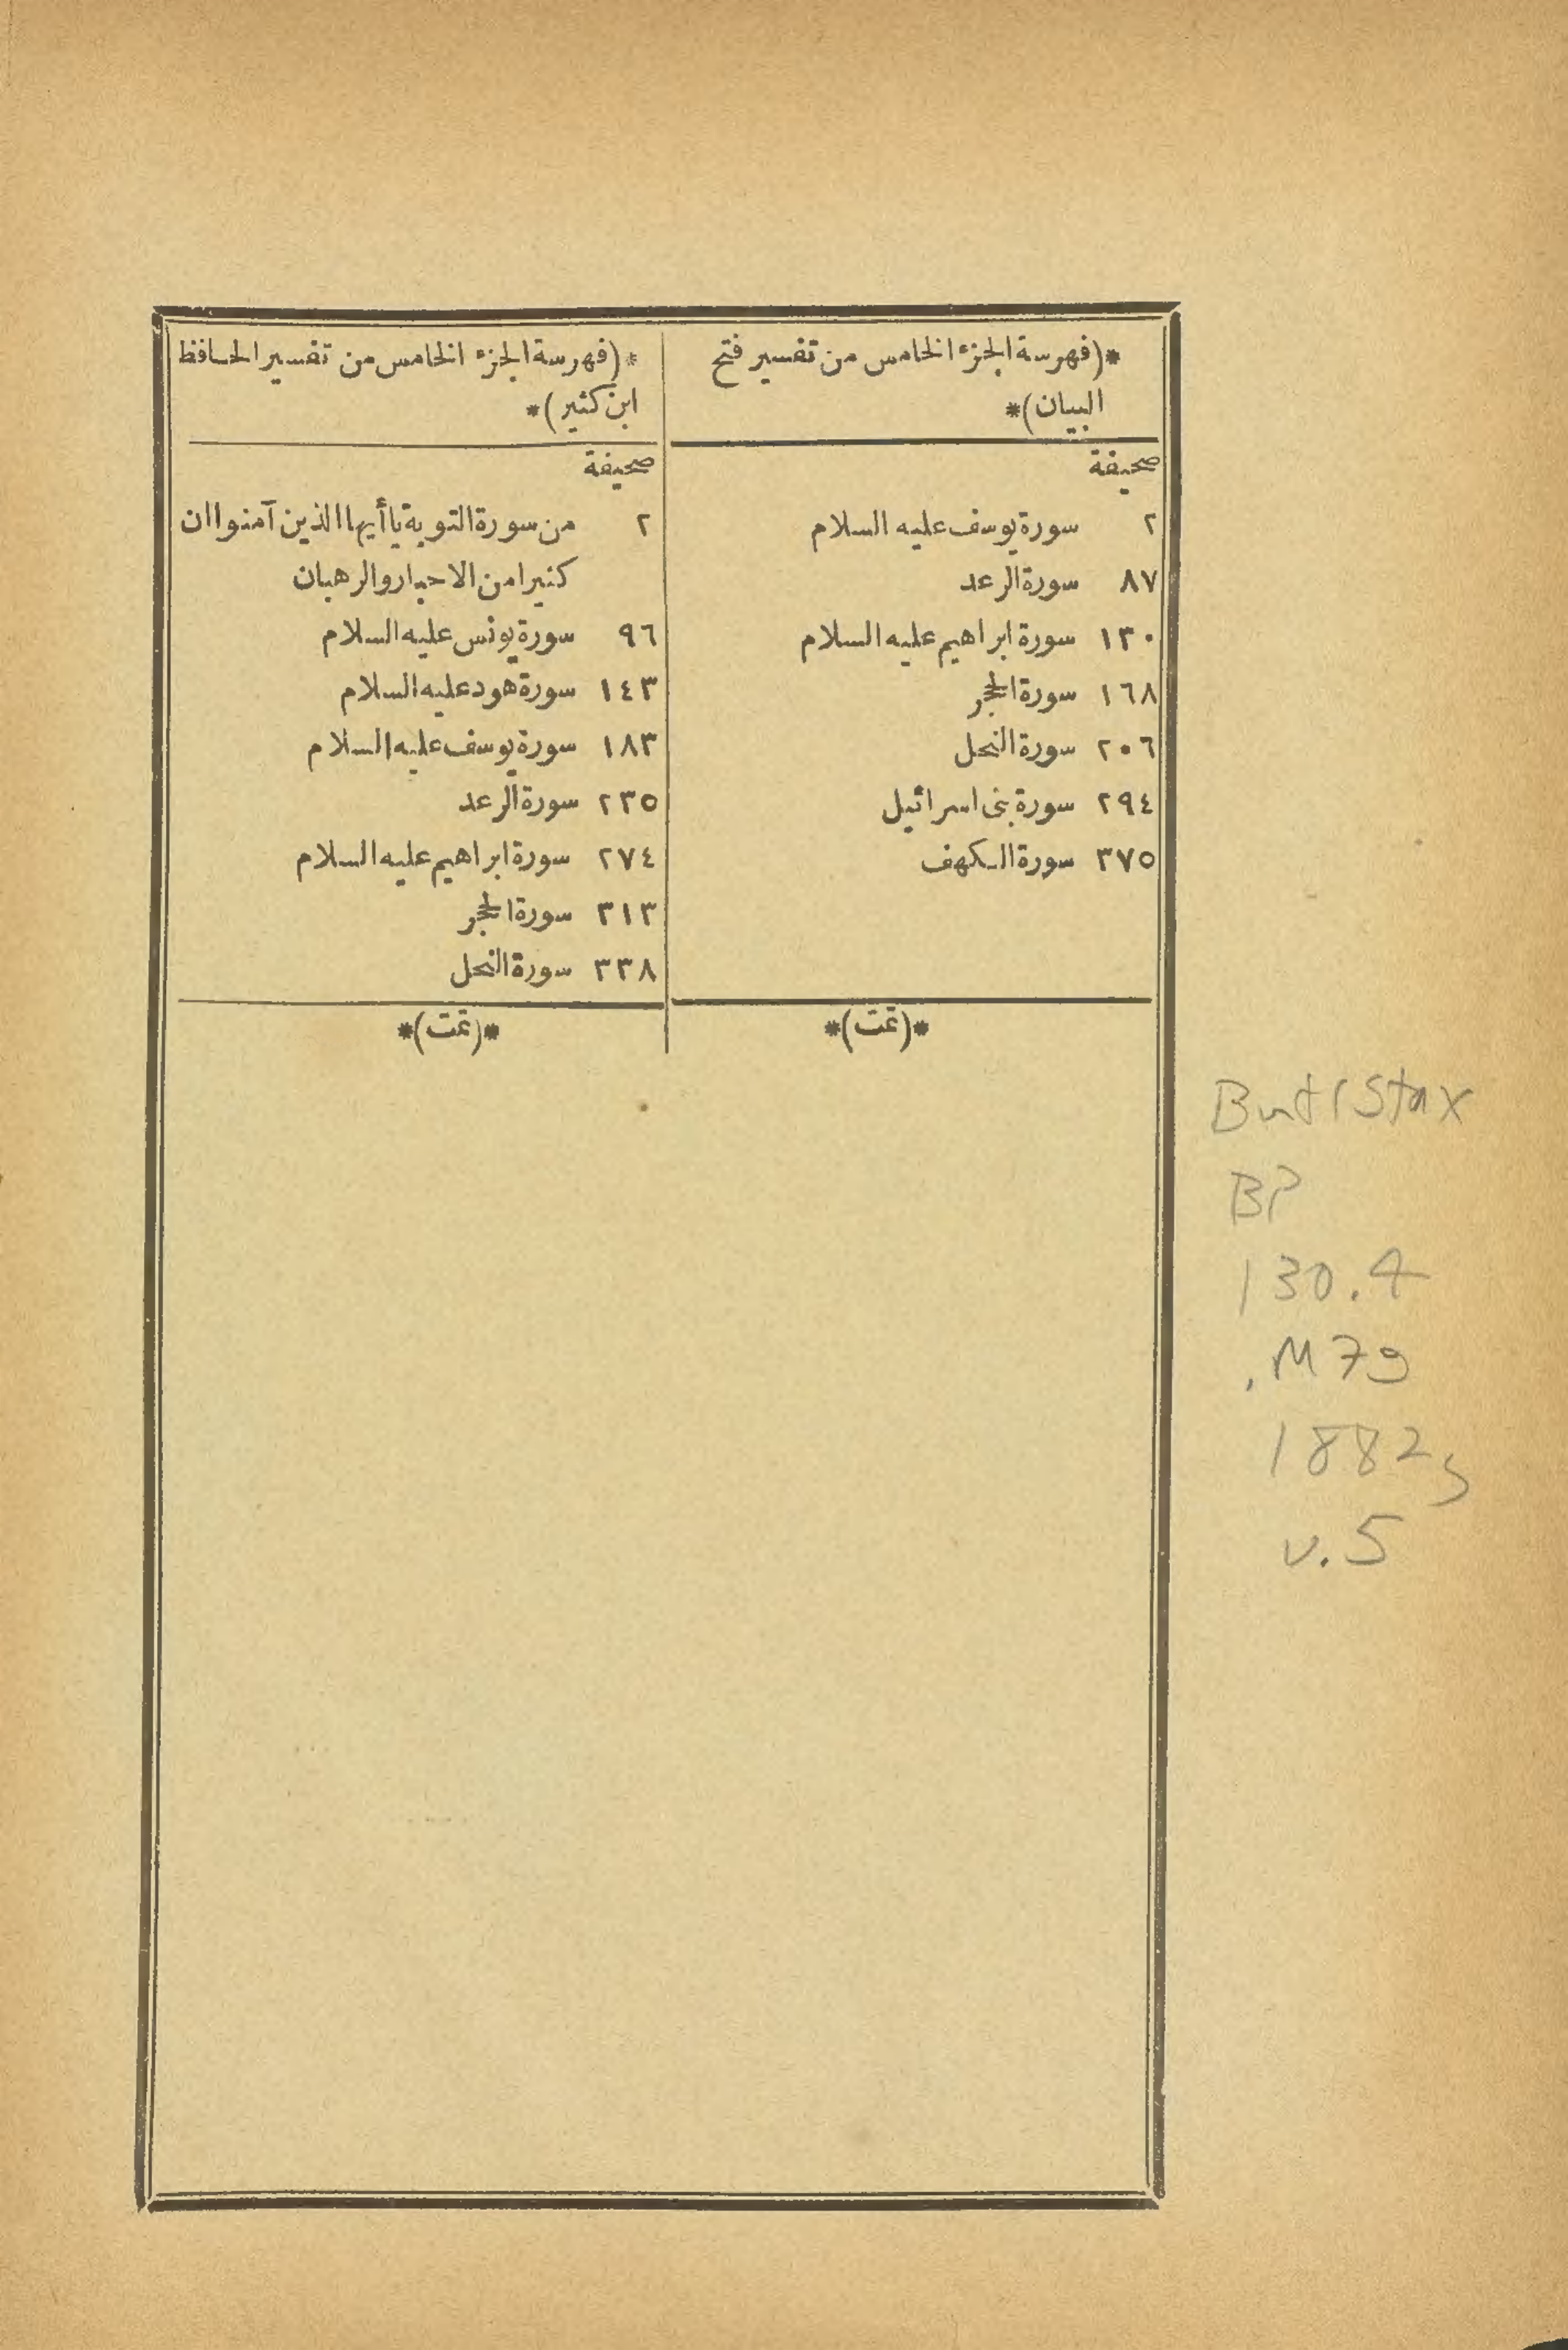 *(فهرسة الجزء الخامس من تفسير فتح
البيان)*
صحيفة
٢ سورة يوسف عليه السلام
٨٧ سورة الرعد
١٣٠ سورة ابراهيم عليه السلام
١٦٨ سورة الحجر
٢٠٦ سورة النحل
٢٩٤ سورة بنى اسرائيل
٣٧٥ سورة الكهف
*(تمت)*
*(فهرسة الجزء الخامس من تفسير الحافظ
ابن كثير)*
صحيفة
٢ من سورة التوبة يا أيها الذين آمنوا ان
كثيرا من الاحبار والرهبان
٩٦ سورة يونس عليه السلام
١٤٣ سورة هود عليه السلام
١٨٣ سورة يوسف عليه السلام
٢٣٥ سورة الرعد
٢٧٤ سورة ابراهيم عليه السلام
٣١٣ سورة الحجر
٣٣٨ سورة النحل
*(تمت)*
BP
130.4
.M79
1882
v.5